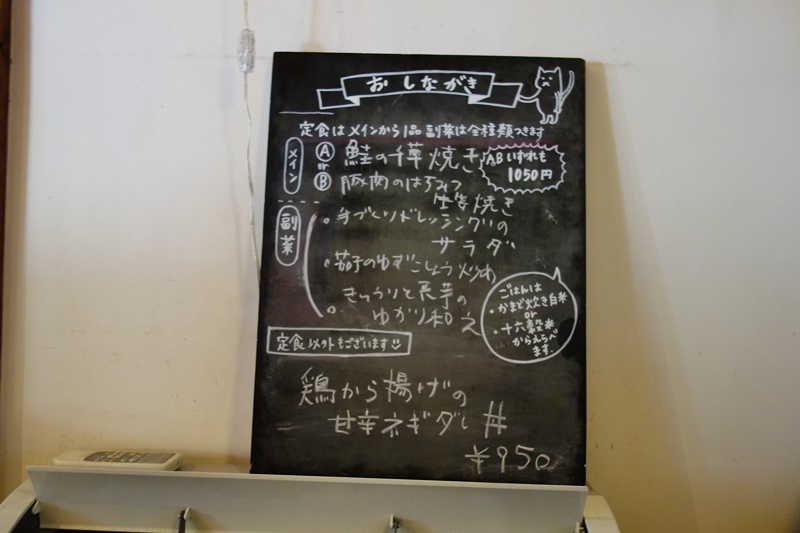 おしながき
定食はメインから1品 副菜は全種類つきます
メイン
Ⓐ 鮭の香草焼き
or
Ⓑ 豚肉のはちみつ
生姜焼き
A,Bいずれも
1050円
副菜
。手づくりドレッシングの
サラダ
。茄子のゆずこしょう炒め
。きゅうりと長芋の
ゆかり和え
ごはんは
・かまど炊き白米
or
・十六穀米
からえらべ
ます。
定食以外もございます
鶏から揚げの
甘辛ネギダレ丼
¥950